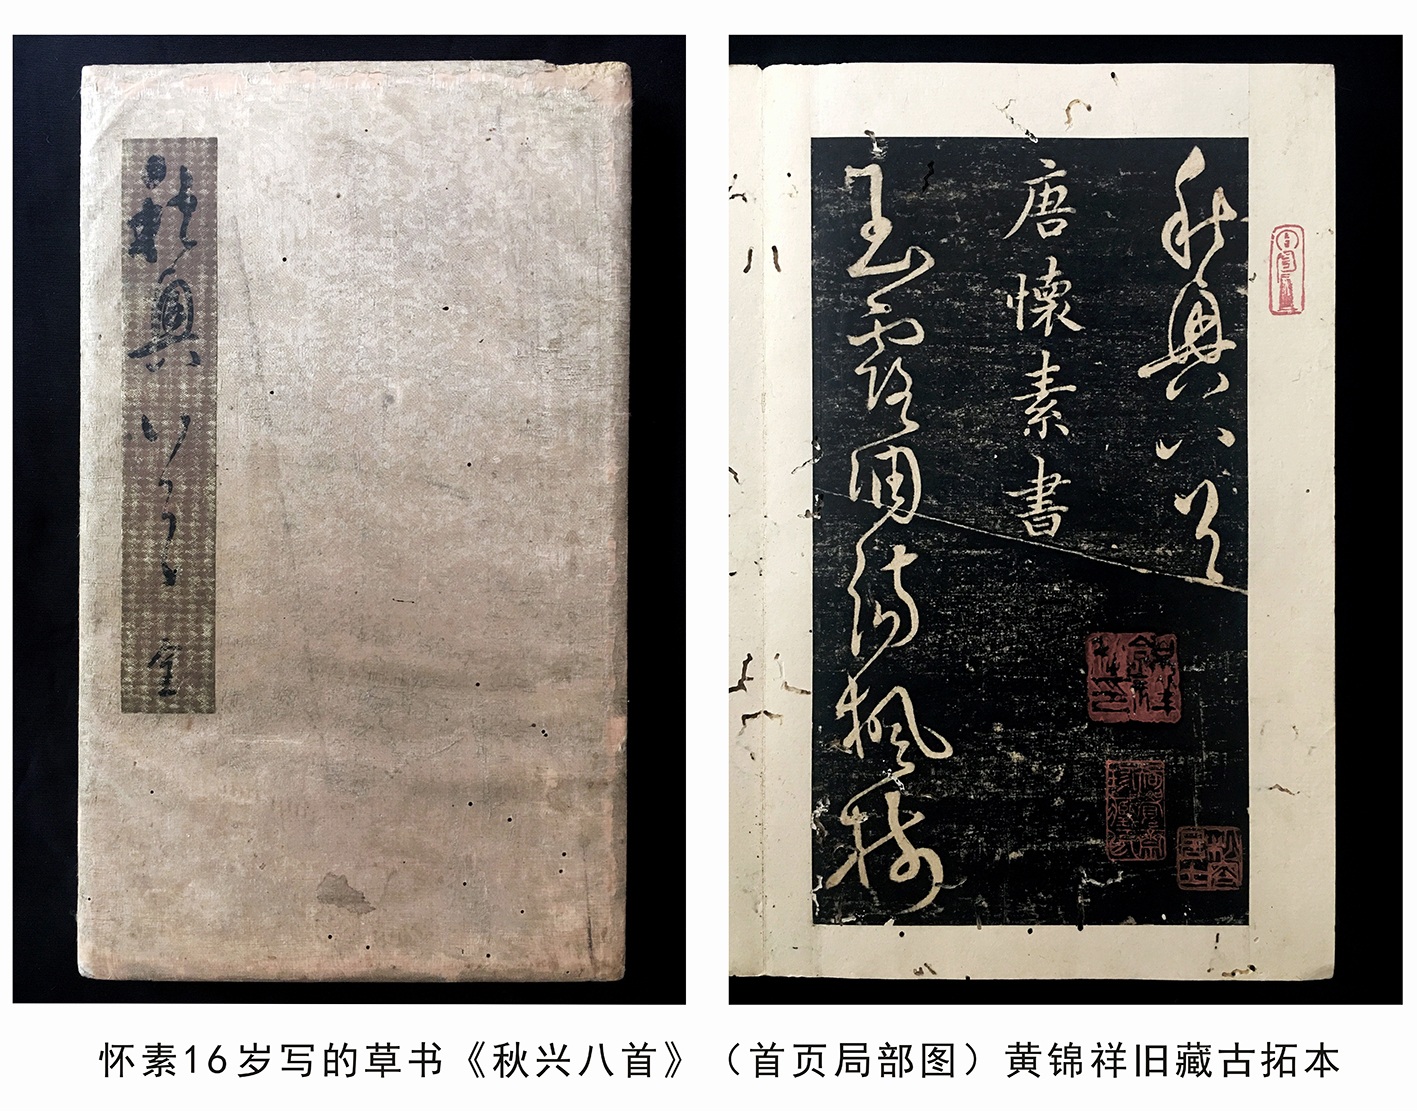 秋興八首
秋興八首
唐懷素書
玉露凋傷楓樹
怀素16岁写的草书《秋兴八首》（首页局部图）黄锦祥旧藏古拓本